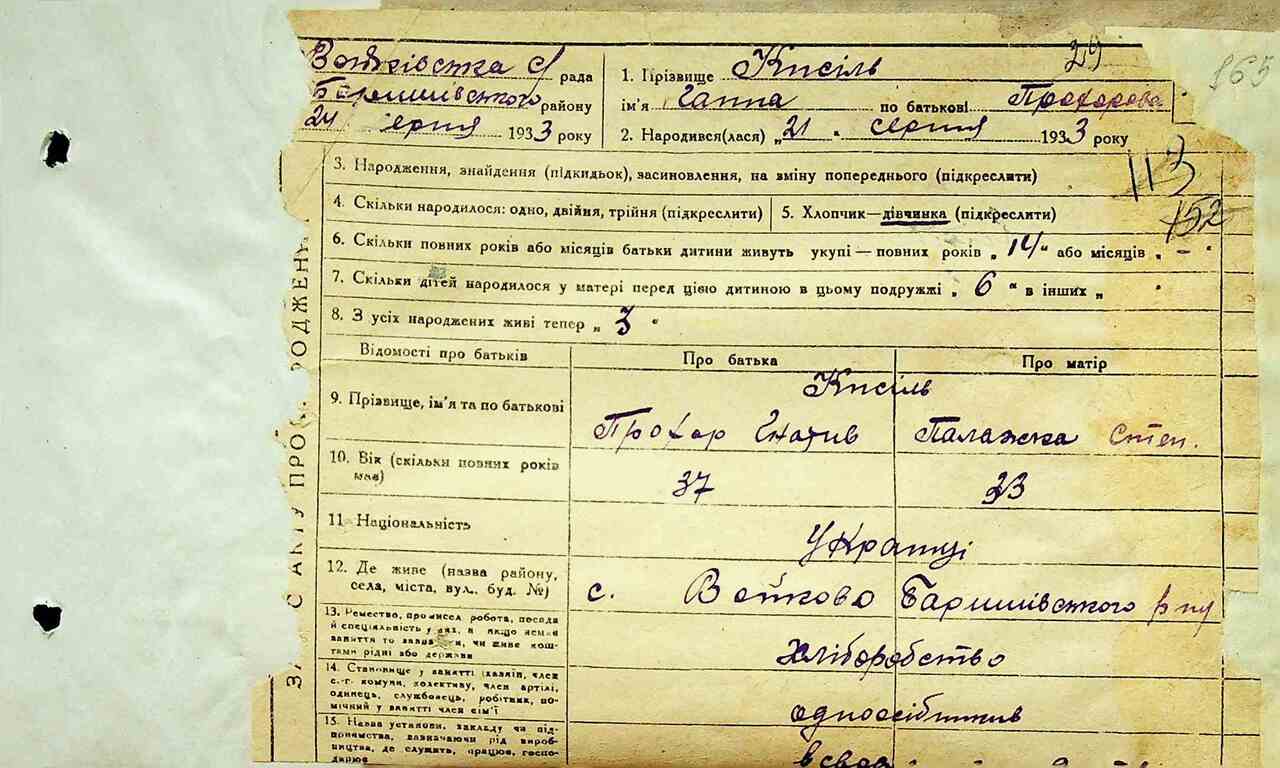 29
165
рада
Баришівського району
24 серпня 1933 року
1. Прізвище Кисіль
ім'я Ганна по батькові Прохорова
2. Народився(лася) „21 " серпня 1933 року
113
152
3. Народження, знайдення (підкидьок), засиновлення, на зміну попереднього (підкреслити)
4. Скільки народилося: одно, двійня, трійня (підкреслити)
5. Хлопчик—дівчинка (підкреслити)
6. Скільки повних років або місяців батьки дитини живуть укупі — повних років „ 14 " або місяців „ – "
7. Скільки дітей народилося у матері перед цією дитиною в цьому подружжі „ 6 " в інших „ "
8. З усіх народжених живі тепер „ 3 "
Відомості про батьків
Про батька
Про матір
9. Прізвище, ім'я та по батькові
Кисіль
Прохор Гнатив
Палажка Степ.
10. Вік (скільки повних років мав)
37
33
11. Національність
Українці
12. Де живе (назва району,
села, міста, вул., буд. №)
с. Войково Баришівського р-ну
13. Ремество, промисел робота, посада
й спеціяльність у них, а якщо немає
заняття то зазначити, чи живе кош-
тами рідні або держави
хліборобство
14. Становище у занятті (хазяїн, член
с.-г. комуни, колективу, член артілі,
одинець, службовець, робітник, по-
мічний у занятті член сім'ї
односібники
15. Назва установи, закладу чи під-
приємства, зазначаючи рід вироб-
ництва, де служить, працює, госпо-
дарює